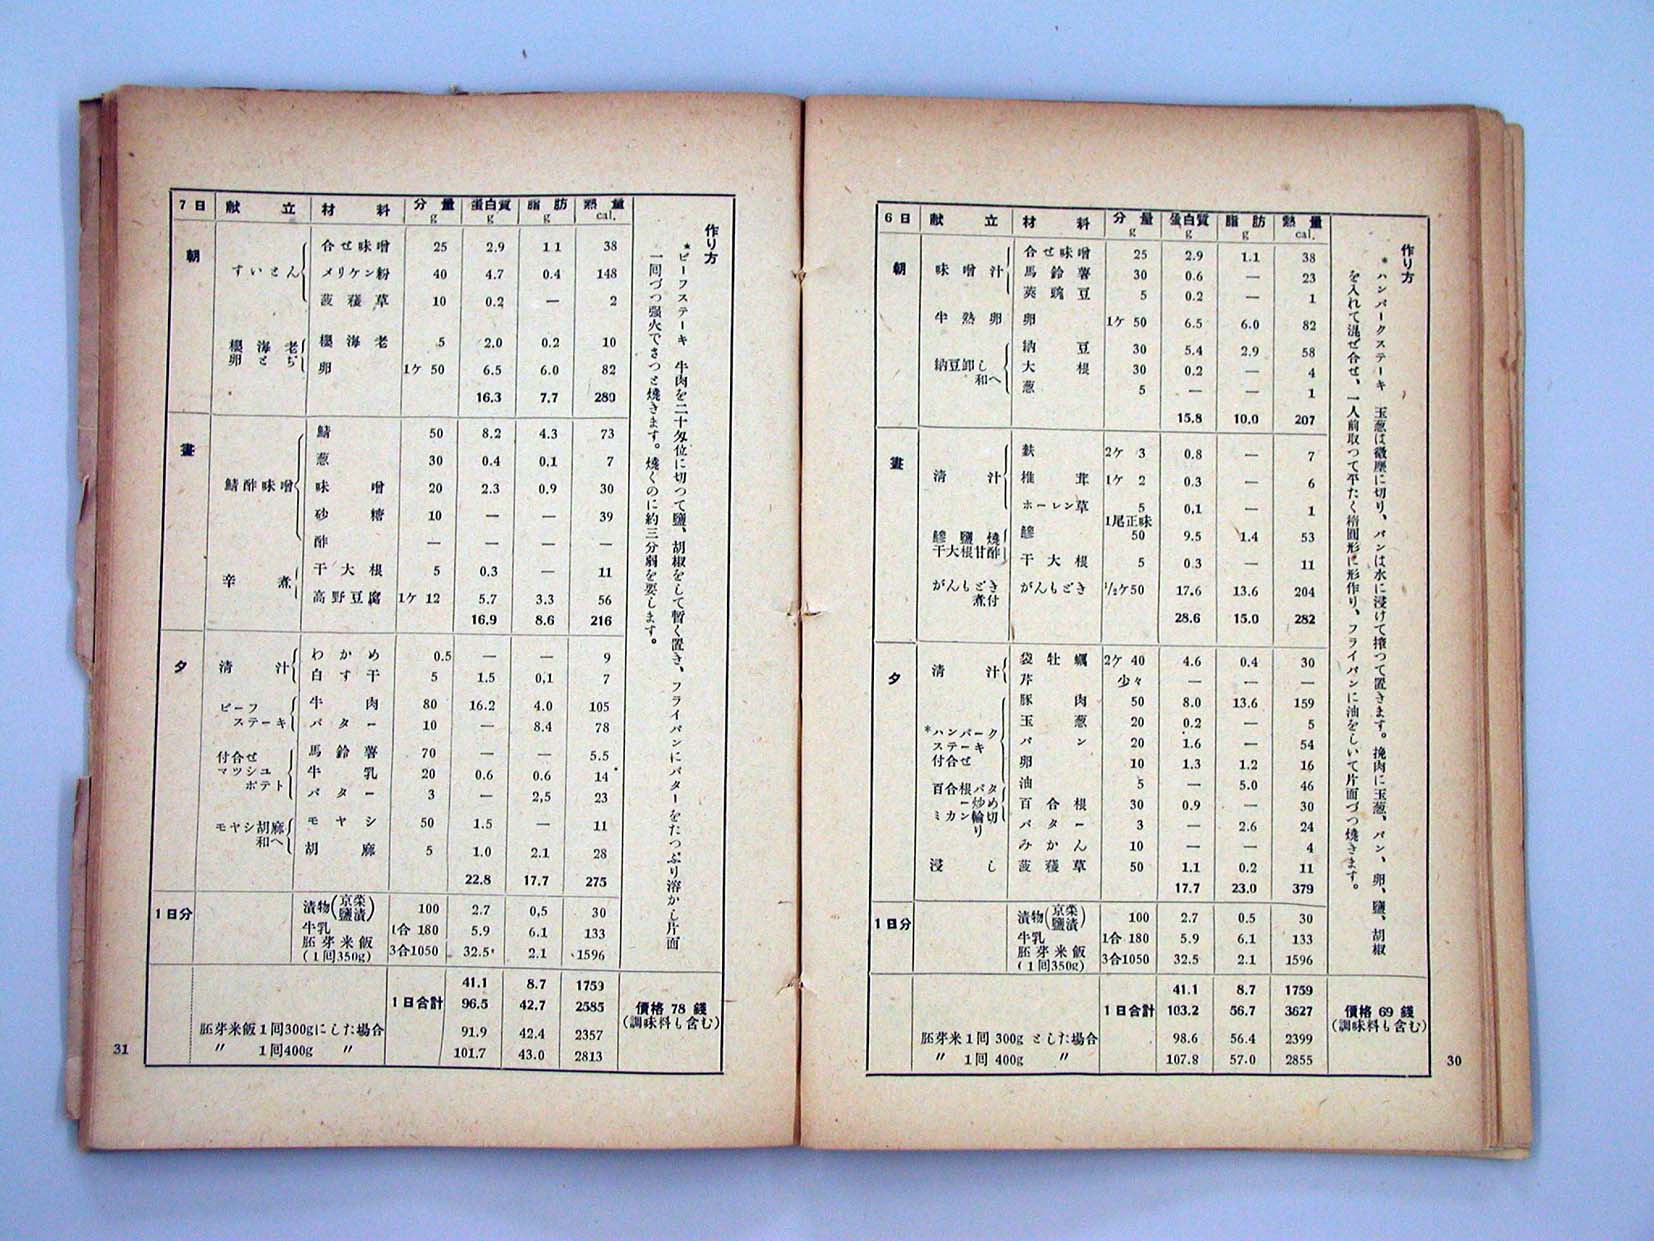 6日 献立 材料 分量 g 蛋白質 g 脂肪 g 熱量 cal.
朝 味噌汁 合せ味噌 25 2.9 1.1 38
馬鈴薯 30 0.6 — 23
莢豌豆 5 0.2 — 1
半熟卵 卵 1ケ 50 6.5 6.0 82
納豆卸し和へ 納豆 30 5.4 2.9 58
大根 30 0.2 — 4
葱 5 — — 1
15.8 10.0 207
晝 清汁 麩 2ケ 3 0.8 — 7
椎茸 1ケ 2 0.3 — 6
ホーレン草 5 0,1 — 1
鰺鹽燒 鰺 1尾正味 50 9.5 1.4 53
干大根甘酢 干大根 5 0.3 — 11
がんもどき煮付 がんもどき 1/2ケ50 17.6 13.6 204
28.6 15.0 282
夕 清汁 袋牡蠣 2ケ 40 4.6 0.4 30
芹 少々 — — —
*ハンバークステーキ 豚肉 50 8.0 13.6 159
玉葱 20 0.2 — 5
パン 20 1.6 — 54
卵 10 1.3 1.2 16
油 5 — 5.0 46
付合せ 百合根バター炒め 百合根 30 0.9 — 30
バター 3 — 2.6 24
ミカン輪切り みかん 10 — — 4
浸し 菠薐草 50 1.1 0.2 11
17.7 23.0 379
1日分 漬物(京菜鹽漬) 100 2.7 0.5 30
牛乳 1合 180 5.9 6.1 133
胚芽米飯(1回350g) 3合1050 32.5 2.1 1596
41.1 8.7 1759
1日合計 103.2 56.7 3627
胚芽米1回 300g とした場合 98.6 56.4 2399
〃 1回 400g 〃 107.8 57.0 2855
價格 69 錢
(調味料も含む)
作り方
*ハンバークステーキ 玉葱は微塵に切り、パンは水に浸けて搾つて置きます。挽肉に玉葱、パン、卵、鹽、胡椒
を入れて混ぜ合せ、一人前取つて平たく楕圓形に形作り、フライパンに油をしいて片面づつ燒きます。
30
7日 献立 材料 分量 g 蛋白質 g 脂肪 g 熱量 cal.
朝 すいとん 合せ味噌 25 2.9 1.1 38
メリケン粉 40 4.7 0.4 148
菠薐草 10 0.2 — 2
櫻海老卵とぢ 櫻海老 5 2.0 0.2 10
卵 1ケ 50 6.5 6.0 82
16.3 7.7 280
晝 鯖酢味噌 鯖 50 8.2 4.3 73
葱 30 0.4 0,1 7
味噌 20 2.3 0.9 30
砂糖 10 — — 39
酢 — — — —
辛煮 干大根 5 0.3 — 11
高野豆腐 1ケ 12 5.7 3.3 56
16.9 8.6 216
夕 清汁 わかめ 0.5 — — 9
白す干 5 1.5 0,1 7
ビーフステーキ 牛肉 80 16.2 4.0 105
バター 10 — 8.4 78
付合せ マツシユポテト 馬鈴薯 70 — — 5.5
牛乳 20 0.6 0.6 14
バター 3 — 2,5 23
モヤシ胡麻和へ モヤシ 50 1.5 — 11
胡麻 5 1.0 2.1 28
22.8 17.7 275
1日分 漬物(京菜鹽漬) 100 2.7 0,5 30
牛乳 1合 180 5.9 6.1 133
胚芽米飯(1回350g) 3合1050 32.5 2.1 1596
41.1 8.7 1759
1日合計 96.5 42.7 2585
胚芽米飯1回300gにした場合 91.9 42.4 2357
〃 1回400g 〃 101.7 43.0 2813
價格 78 錢
(調味料も含む)
作り方
*ビーフステーキ 牛肉を二十匁位に切つて鹽、胡椒をして暫く置き、フライパンにバターをたつぷり溶かし片面
一回づつ强火でさつと燒きます。燒くのに約三分弱を要します。
31